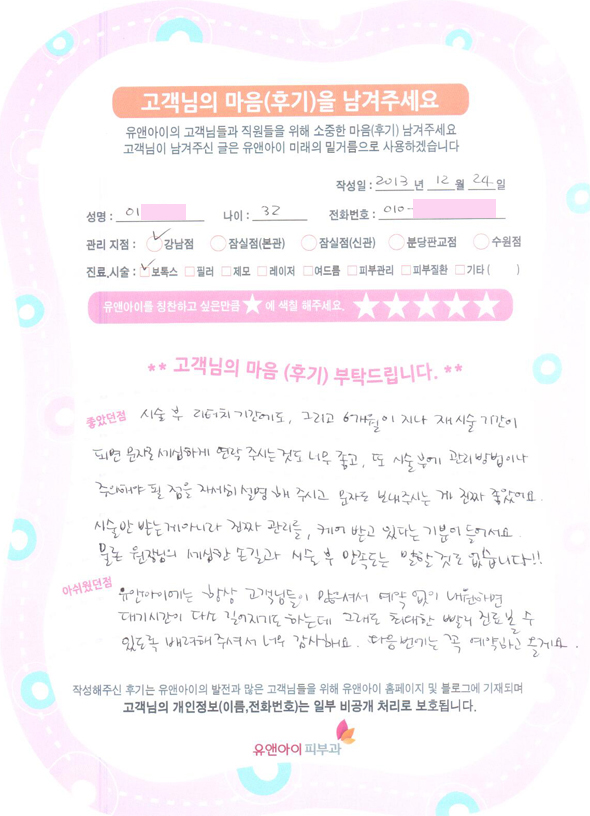 고객님의 마음(후기)을 남겨주세요
유앤아이의 고객님들과 직원들을 위해 소중한 마음(후기) 남겨주세요
고객님이 남겨주신 글은 유앤아이 미래의 밑거름으로 사용하겠습니다
작성일 : 2013 년 12 월 24 일
성명 : 이 나이 : 32 전화번호 : 010-
관리 지점 : 강남점 잠실점(본관) 잠실점(신관) 분당판교점 수원점
진료,시술 : 보톡스 필러 제모 레이저 여드름 피부관리 피부질환 기타 ( )
유앤아이를 칭찬하고 싶은만큼 ★ 에 색칠 해주세요. ★★★★★
** 고객님의 마음 (후기) 부탁드립니다. **
좋았던점 시술 후 리터치기간에도, 그리고 6개월이 지나 재시술 기간이
되면 문자로 세심하게 연락 주시는것도 너무 좋고, 또 시술 후에 관리방법이나
주의해야 될 점을 자세히 설명 해 주시고 문자로 보내주시는 게 진짜 좋았어요.
시술만 받는게아니라 진짜 관리를, 케어 받고 있다는 기분이 들어서요.
물론 원장님의 세심한 손길과 시술 후 만족도는 말할 것도 없습니다!!
아쉬웠던점 유앤아이에는 항상 고객님들이 많으셔서 예약 없이 내원하면
대기시간이 다소 길어지기도 하는데 그래도 최대한 빨리 진료볼 수
있도록 배려해 주셔서 너무 감사해요. 다음번에는 꼭 예약하고 올게요.
작성해주신 후기는 유앤아이의 발전과 많은 고객님들을 위해 유앤아이 홈페이지 및 블로그에 기재되며
고객님의 개인정보(이름,전화번호)는 일부 비공개 처리로 보호됩니다.
유앤아이 피부과